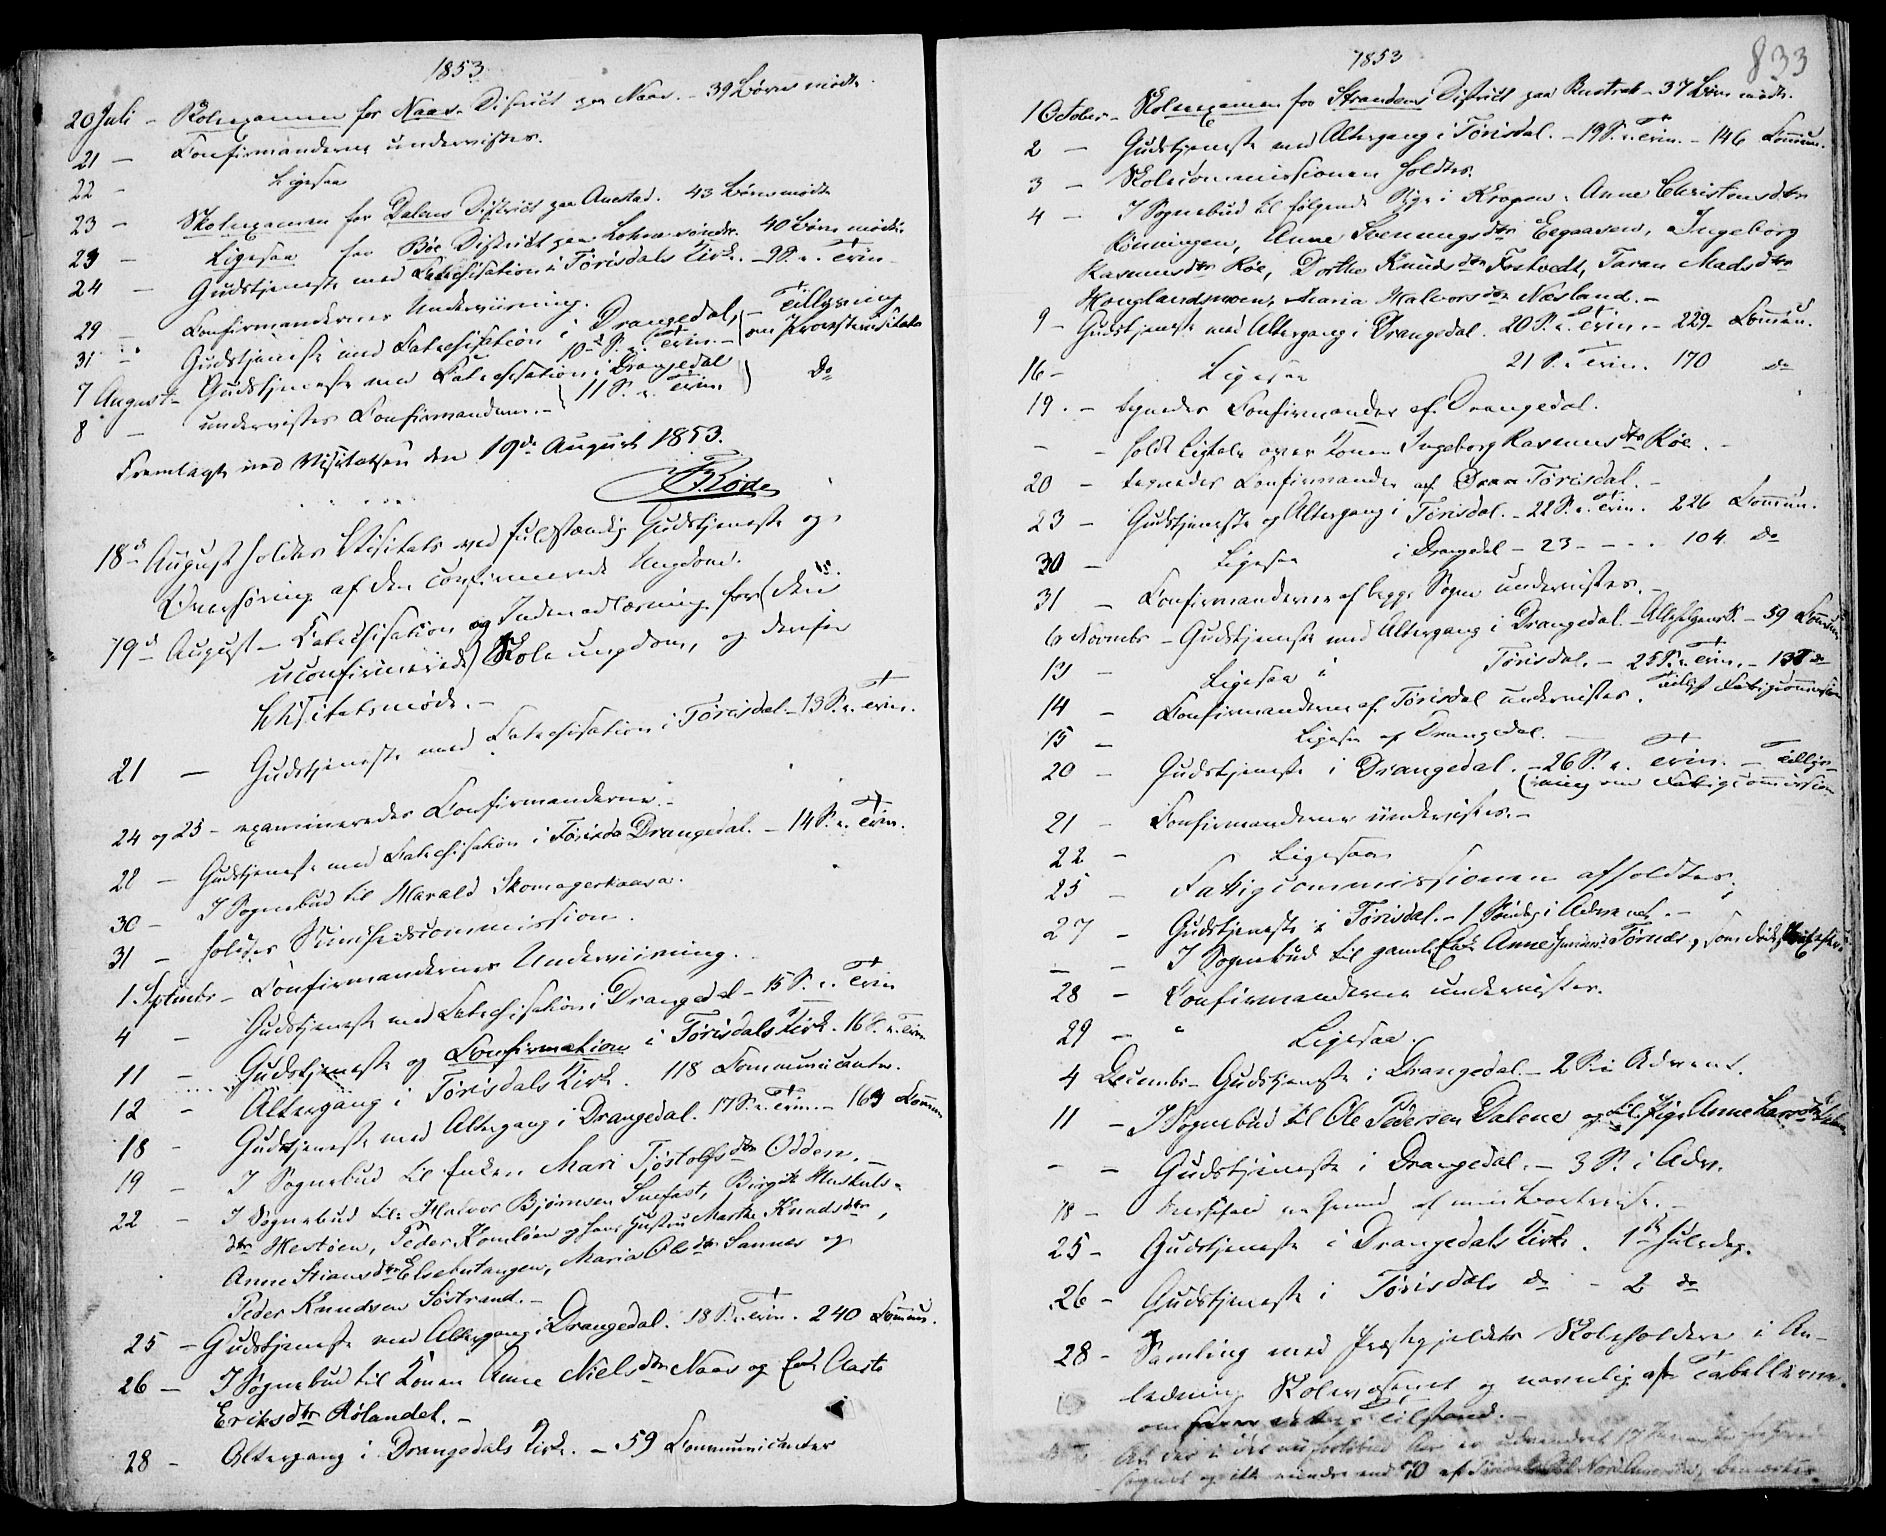 1853
20 Juli – Skoleexamen for Naas District paa Naas. – 39 Børn mødte.
21 – Confirmanderne undervistes.
22 – Ligesaa
23 – Skoleexamen for Dalens District paa Anestad. 43 Børn mødte
23 – Ligesaa for Bøe District paa 40 Børn mødte.
24 – Gudstjeneste med Catechisation i Tørisdals Kirke. – 9 S. e. Trin.
29 – Confirmandernes Underviisning.
31 – Gudstjeneste med Catechisation i Drangedal, – Tillysning
10de S. e. Trin. – om Provstevisitats
7 August – Gudstjeneste med Catechisation i Drangedal
11 S. e. Trin. Do
8 – undervistes Confirmanderne. –
Fremlagt ved Visitatsen den 19de August 1853.
Rode
18de August holdtes Visitats med fuldstændig Gudstjeneste og
Overhøring af den confirmerede Ungdom.
19de August – Catechisation og Indenadlæsning for (den
uconfirmerede) Skoleungdom, og derefter
Visitatsmøde. –
21 – Gudstjeneste med Catechisation i Tørisdal – 13 S. e. Trin.
24 og 25 – examineredes Confirmanderne. –
28 – Gudstjeneste med Catechisation i Drangedal. – 14 S. e. Trin.
30 – I Sognebud til Harald Skomagerkaasa.
31 – holdtes Sundhedscommission.
1 Septembr – Confirmandernes Underviisning.
4 – Gudstjeneste med Catechisation i Drangedal – 15 S. e. Trin
11 – Gudstjeneste og Confirmation i Tørisdals Kirke. 16 S. e. Trin
12 – Altergang i Tørisdals Kirke. 118 Communicanter.
18 – Gudstjeneste med Altergang i Drangedal. 17 S. e. Trin. – 163 Commun
19 – I Sognebud til Enken Mari Tjøstolfsdtr Odden. –
22 – I Sognebud til: Halvor Bjørnsen Birgit
dtr Peder og hans Hustru Marthe Knudsdtr,
Anne Maria Olsdtr Sannes og
Peder Knudsen Søstrand. –
25 – Gudstjeneste med Altergang i Drangedal. 18 S. e. Trin. 240 Commun.
26 – I Sognebud til Konen Anne Nielsdtr Naas og Aaste
Eriksdtr Rølandet. –
28 – Altergang i Drangedals Kirke. – 59 Communicanter
1853
833
1 October – Skoleexamen for Strandens District paa – 37 Børn mødte.
2 – Gudstjeneste med Altergang i Tørisdal. – 19 S. e. Trin. – 146 Commun.
3 – Skolecommissionen holdtes.
4 – I Sognebud til følgende Syge i Krogen: Anne Christensdtr
Rønningen, Anne Svenningsdtr Eegaasen, Ingeborg
Rasmusdtr Røe, Dorthe Knudsdtr Taran Madsdtr
Houglandsmoen, Maria Halvorsdtr Næsland. –
9 – Gudstjeneste med Altergang i Drangedal. 20 S. e. Trin. – 229 Commun.
16 – Ligesaa 21 S. e. Trin. 170 do
19. – tegnedes Confirmander af Drangedal.
– – holdt Ligtale over Konen Ingeborg Rasmusdtr Røe. –
20 – tegnedes Confirmander af Tørisdal. –
23 – Gudstjeneste og Altergang i Tørisdal. – 22 S. e. Trin. 226 Commun.
30 – Ligesaa i Drangedal – 23 – – – 104 do
31 – Confirmanderne af begge Sogne undervistes. –
6 Novembr – Gudstjeneste med Altergang i Drangedal – – 59 Commun
13 – Ligesaa i Tørisdal. – 25 S. e. Trin. – 137 do
14 – Confirmanderne af Tørisdal undervistes. Fattigcommission
15 – Ligesaa af Drangedal.
20 – Gudstjeneste i Drangedal. – 26 S. e. Trin. – Tillys-
ning om Fattigcommission
21 – Confirmanderne undervistes. –
22 – Ligesaa
25 – Fattigcommissionen afholdtes.
27 – Gudstjeneste i Tørisdal. – 1 Søndag i Advent. –
– – I Sognebud til gamle Anne Tørnes, som døde
28 – Confirmanderne undervistes.
29 – " Ligesaa.
4 Decembr – Gudstjeneste i Drangedal. – 2 S. i Advent.
11 – I Sognebud til Ole Pedersen Dalene og til Pige Anne Larsdtr
– – Gudstjeneste i Drangedal. – 3 S. i Adv.
18 – Messefald paa Grund af min
25 – Gudstjeneste i Drangedals Kirke. 1ste Juledag.
26 – Gudstjeneste i Tørisdals do – 2 do
28 – Samling med Præstegjeldets Skoleholdere i An-
ledning Skolevæsenet og navnlig af Tabellerne
om Tilstand. –
At der i det nu forløbne Aar er udvandret 17
sognet og ikke mindre end 70 af Tørisdal til Nord America, bemærkes.